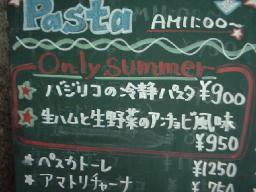 Pasta AM11:00~
Only summer
バジリコの冷静パスタ ¥900
生ハムと生野菜のアンチョビ風味
¥950
ペスカトーレ ¥1250
アマトリチャーナ ¥950